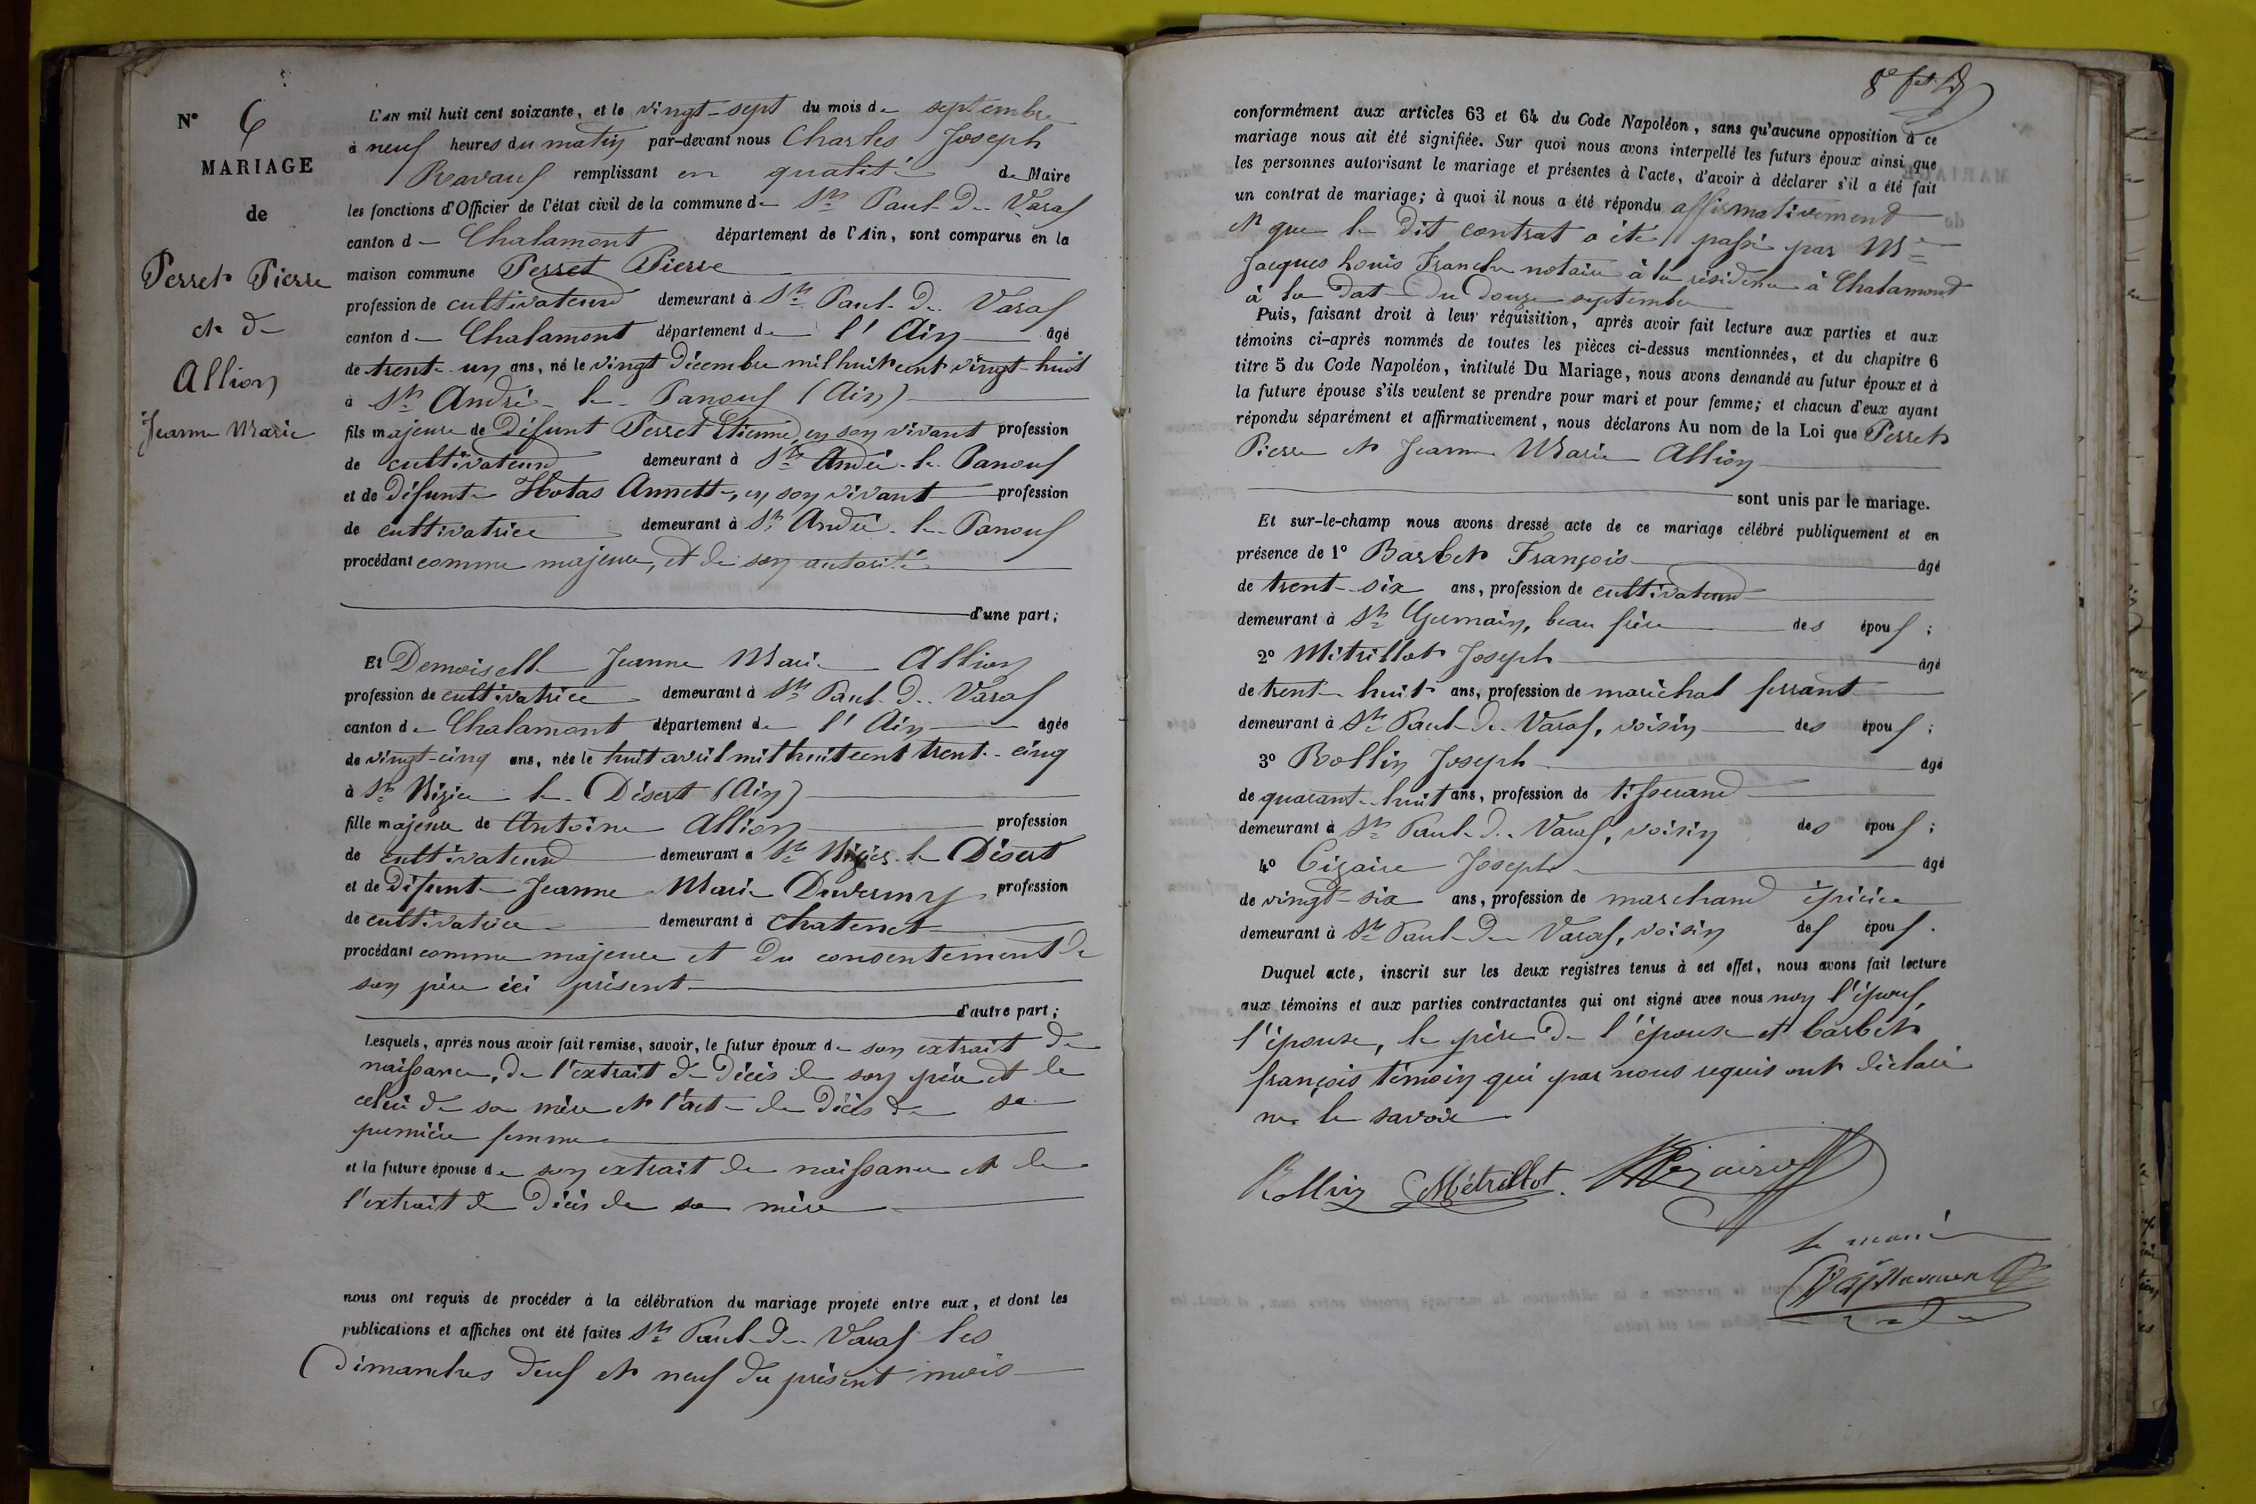 N° 6
MARIAGE
de
Perret Pierre
et de
Allion
Jeanne Marie
L'AN mil huit cent soixante, et le vingt-sept du mois de septembre
à neuf heures du matin par-devant nous Charles Joseph
Ravaux remplissant en qualité de Maire
les fonctions d'Officier de l'état civil de la commune de St Paul de Varax
canton de Chalamont département de l'Ain, sont comparus en la
maison commune Perret Pierre
profession de cultivateur demeurant à St Paul de Varax
canton de Chalamont département de l'Ain âgé
de trente-un ans, né le vingt Décembre mil huit cent vingt-huit
à St André-le-Panoux (Ain)
fils majeur de Défunt Perret Etienne, en son vivant profession
de cultivateur demeurant à St André-le-Panoux
et de défunte Hotas Annette, en son vivant profession
de cultivatrice demeurant à St André-le-Panoux
procédant comme majeur, et de son autorité
d'une part;
Et Demoiselle Jeanne Marie Allion
profession de cultivatrice demeurant à St Paul de Varax
canton de Chalamont département de l'Ain âgée
de vingt-cinq ans, née le huit avril mil huit cent trente-cinq
à St Nizier le Désert (Ain)
fille majeure de Antoine Allion profession
de cultivateur demeurant à St Nizier le Désert
et de défunte Jeanne Marie profession
de cultivatrice demeurant à Chatenet
procédant comme majeure et du consentement de
son père ici présent
d'autre part;
Lesquels, après nous avoir fait remise, savoir, le futur époux de son extrait de
naissance, de l'extrait de Décès de son père et de
celui de sa mère et l'acte de décès de sa
première femme
et la future épouse de son extrait de naissance et de
l'extrait de Décès de sa mère
nous ont requis de procéder à la célébration du mariage projeté entre eux, et dont les
publications et affiches ont été faites St Paul de Varax les
dimanches deux et neuf du présent mois
conformément aux articles 63 et 64 du Code Napoléon, sans qu'aucune opposition à ce
mariage nous ait été signifiée. Sur quoi nous avons interpellé les futurs époux ainsi que
les personnes autorisant le mariage et présentes à l'acte, d'avoir à déclarer s'il a été fait
un contrat de mariage; à quoi il nous a été répondu affirmativement
et que le dit contrat a été passé par Me
Jacques Louis Franche notaire à la résidence à Chalamont
à la date du Douze septembre
Puis, faisant droit à leur réquisition, après avoir fait lecture aux parties et aux
témoins ci-après nommés de toutes les pièces ci-dessus mentionnées, et du chapitre 6
titre 5 du Code Napoléon, intitulé Du Mariage, nous avons demandé au futur époux et à
la future épouse s'ils veulent se prendre pour mari et pour femme; et chacun d'eux ayant
répondu séparément et affirmativement, nous déclarons Au nom de la Loi que Perret
Pierre et Jeanne Marie Allion
sont unis par le mariage.
Et sur-le-champ nous avons dressé acte de ce mariage célébré publiquement et en
présence de 1° Barbet François âgé
de trente-six ans, profession de cultivateur
demeurant à St Germain, beau frère des époux;
2° Métrillot Joseph âgé
de trente-huit ans, profession de maréchal ferrant
demeurant à St Paul de Varax, voisin des époux;
3° Rollin Joseph âgé
de quarante-huit ans, profession de tisserand
demeurant à St Paul de Varax, voisin des époux;
4° Cizaire Joseph âgé
de vingt-six ans, profession de marchand épicier
demeurant à St Paul de Varax, voisin des époux.
Duquel acte, inscrit sur les deux registres tenus à cet effet, nous avons fait lecture
aux témoins et aux parties contractantes qui ont signé avec nous non l'époux,
l'épouse, le père de l'épouse et barbet
françois témoin qui par nous requis ont déclaré
ne le savoir
Rollin Métrillot Cizaire
le maire